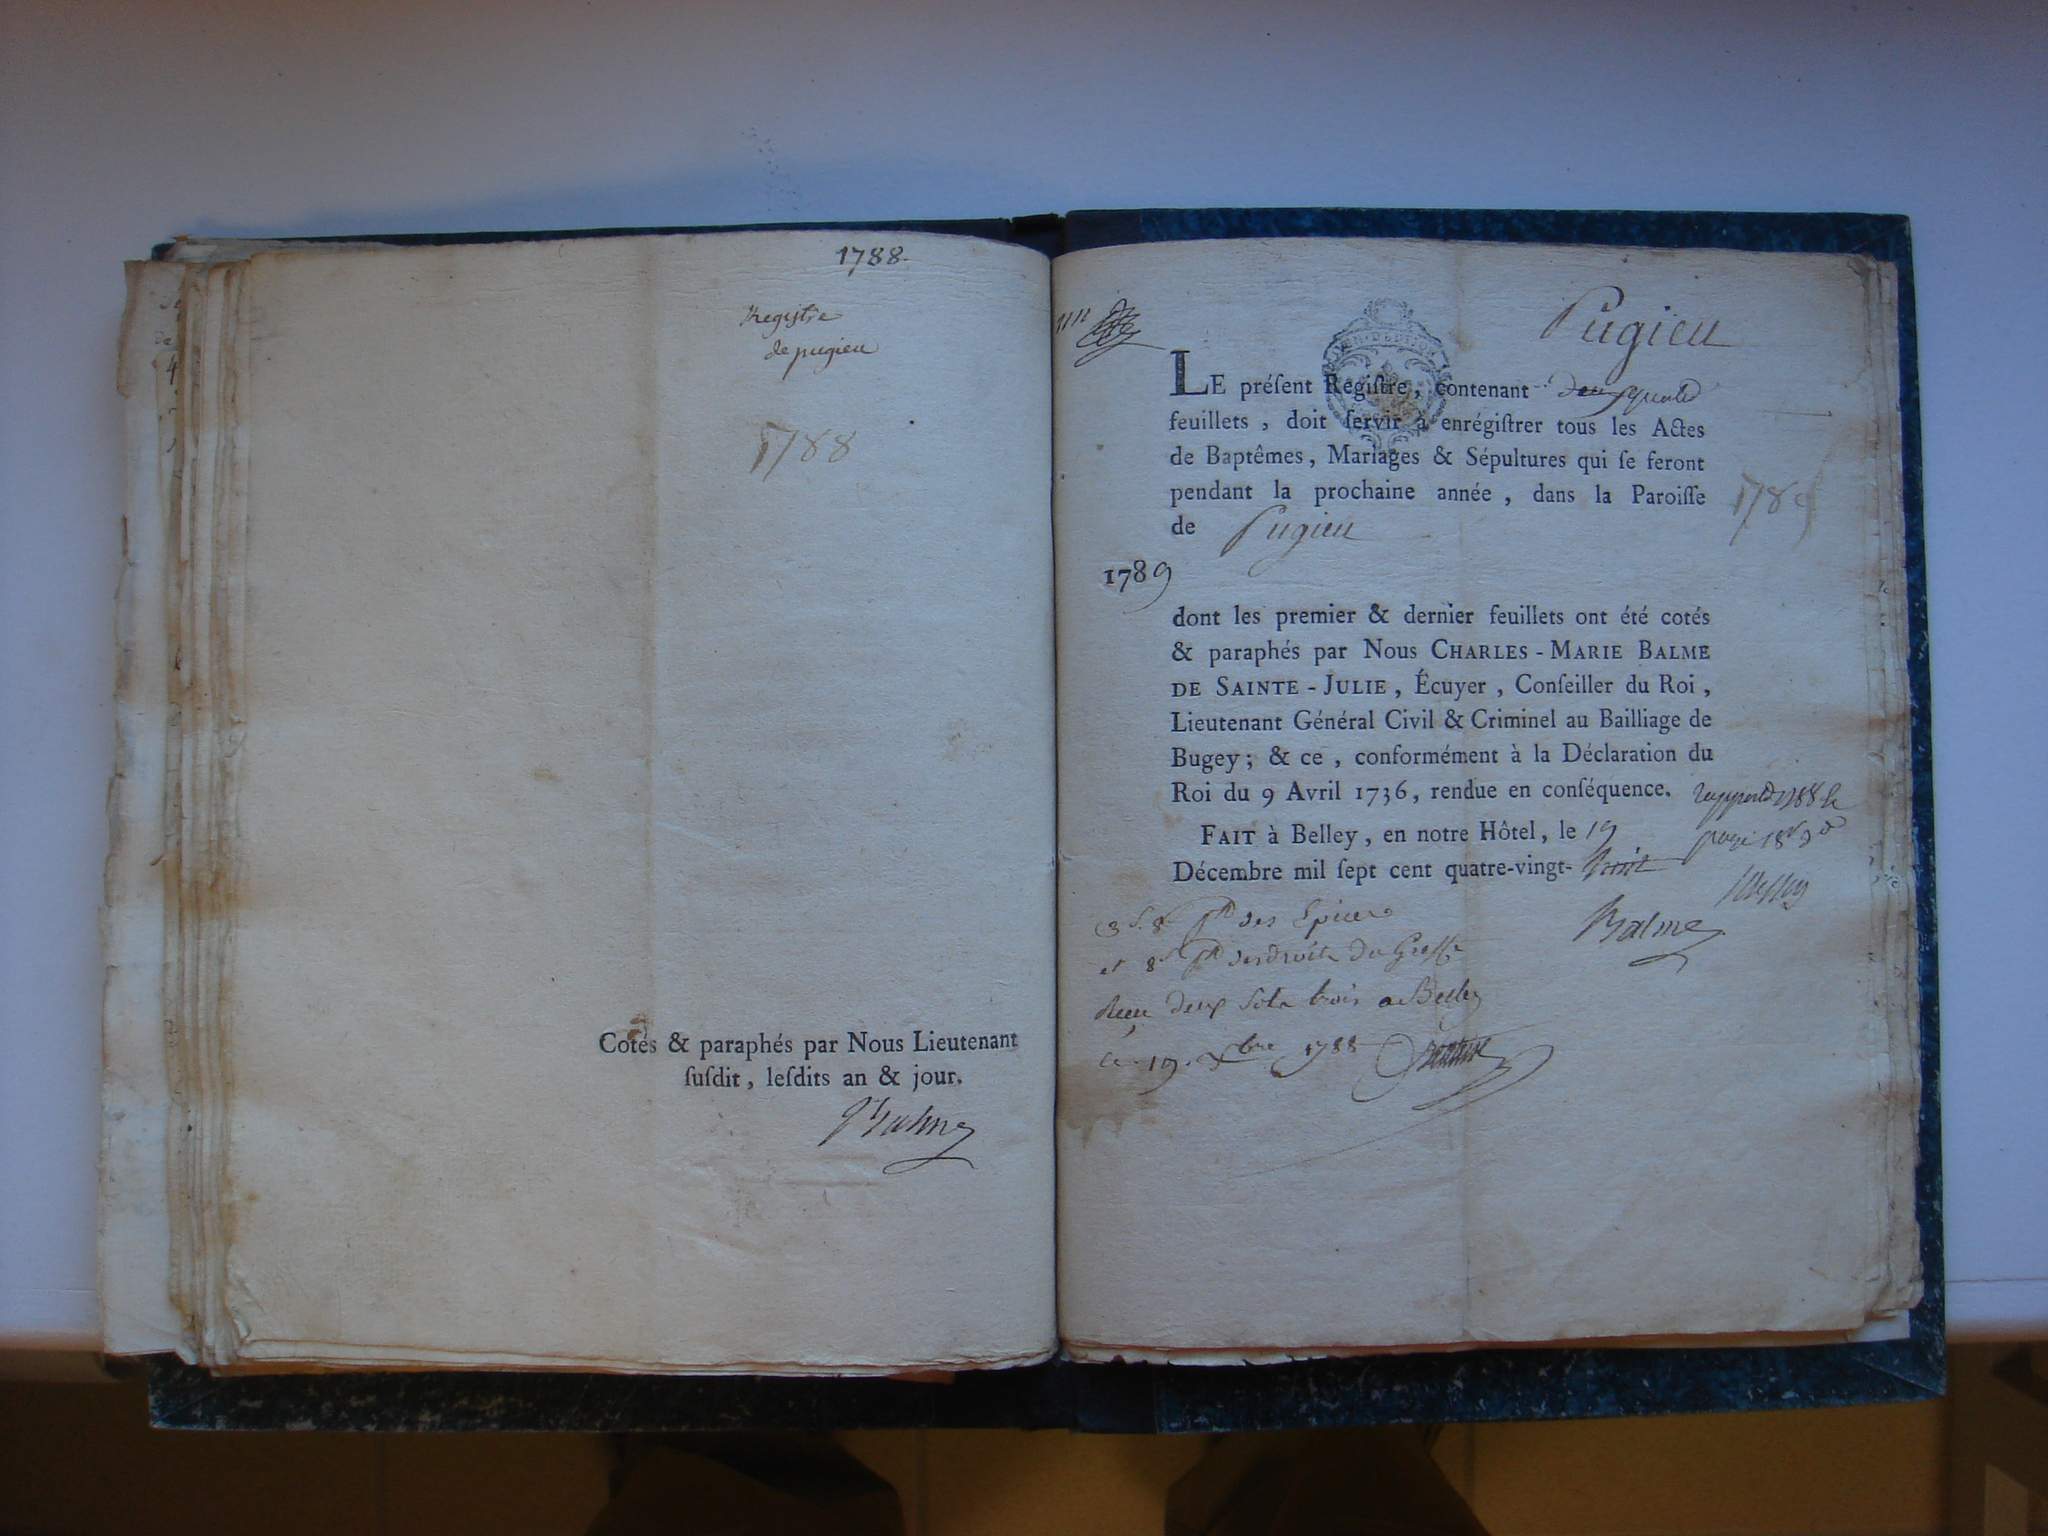 1788.
Registre
de pugieu
1788
Cotés & paraphés par Nous Lieutenant
ſuſdit, leſdits an & jour.
Balme
Pugieu
LE préſent Regiſtre, contenant
feuillets, doit ſervir à enrégiſtrer tous les Actes
de Baptêmes, Mariages & Sépultures qui ſe feront
pendant la prochaine année, dans la Paroiſſe
1789
de Pugieu
1789
dont les premier & dernier feuillets ont été cotés
& paraphés par Nous CHARLES-MARIE BALME
DE SAINTE-JULIE, Écuyer, Conſeiller du Roi,
Lieutenant Général Civil & Criminel au Bailliage de
Bugey; & ce, conformément à la Déclaration du
Roi du 9 Avril 1736, rendue en conſéquence.
FAIT à Belley, en notre Hôtel, le 19
Décembre mil ſept cent quatre-vingt-huit
Balme
des Epices
et des droits du Greffe
Reçu deux sols trois a Belley
ce 19 Xbre 1788